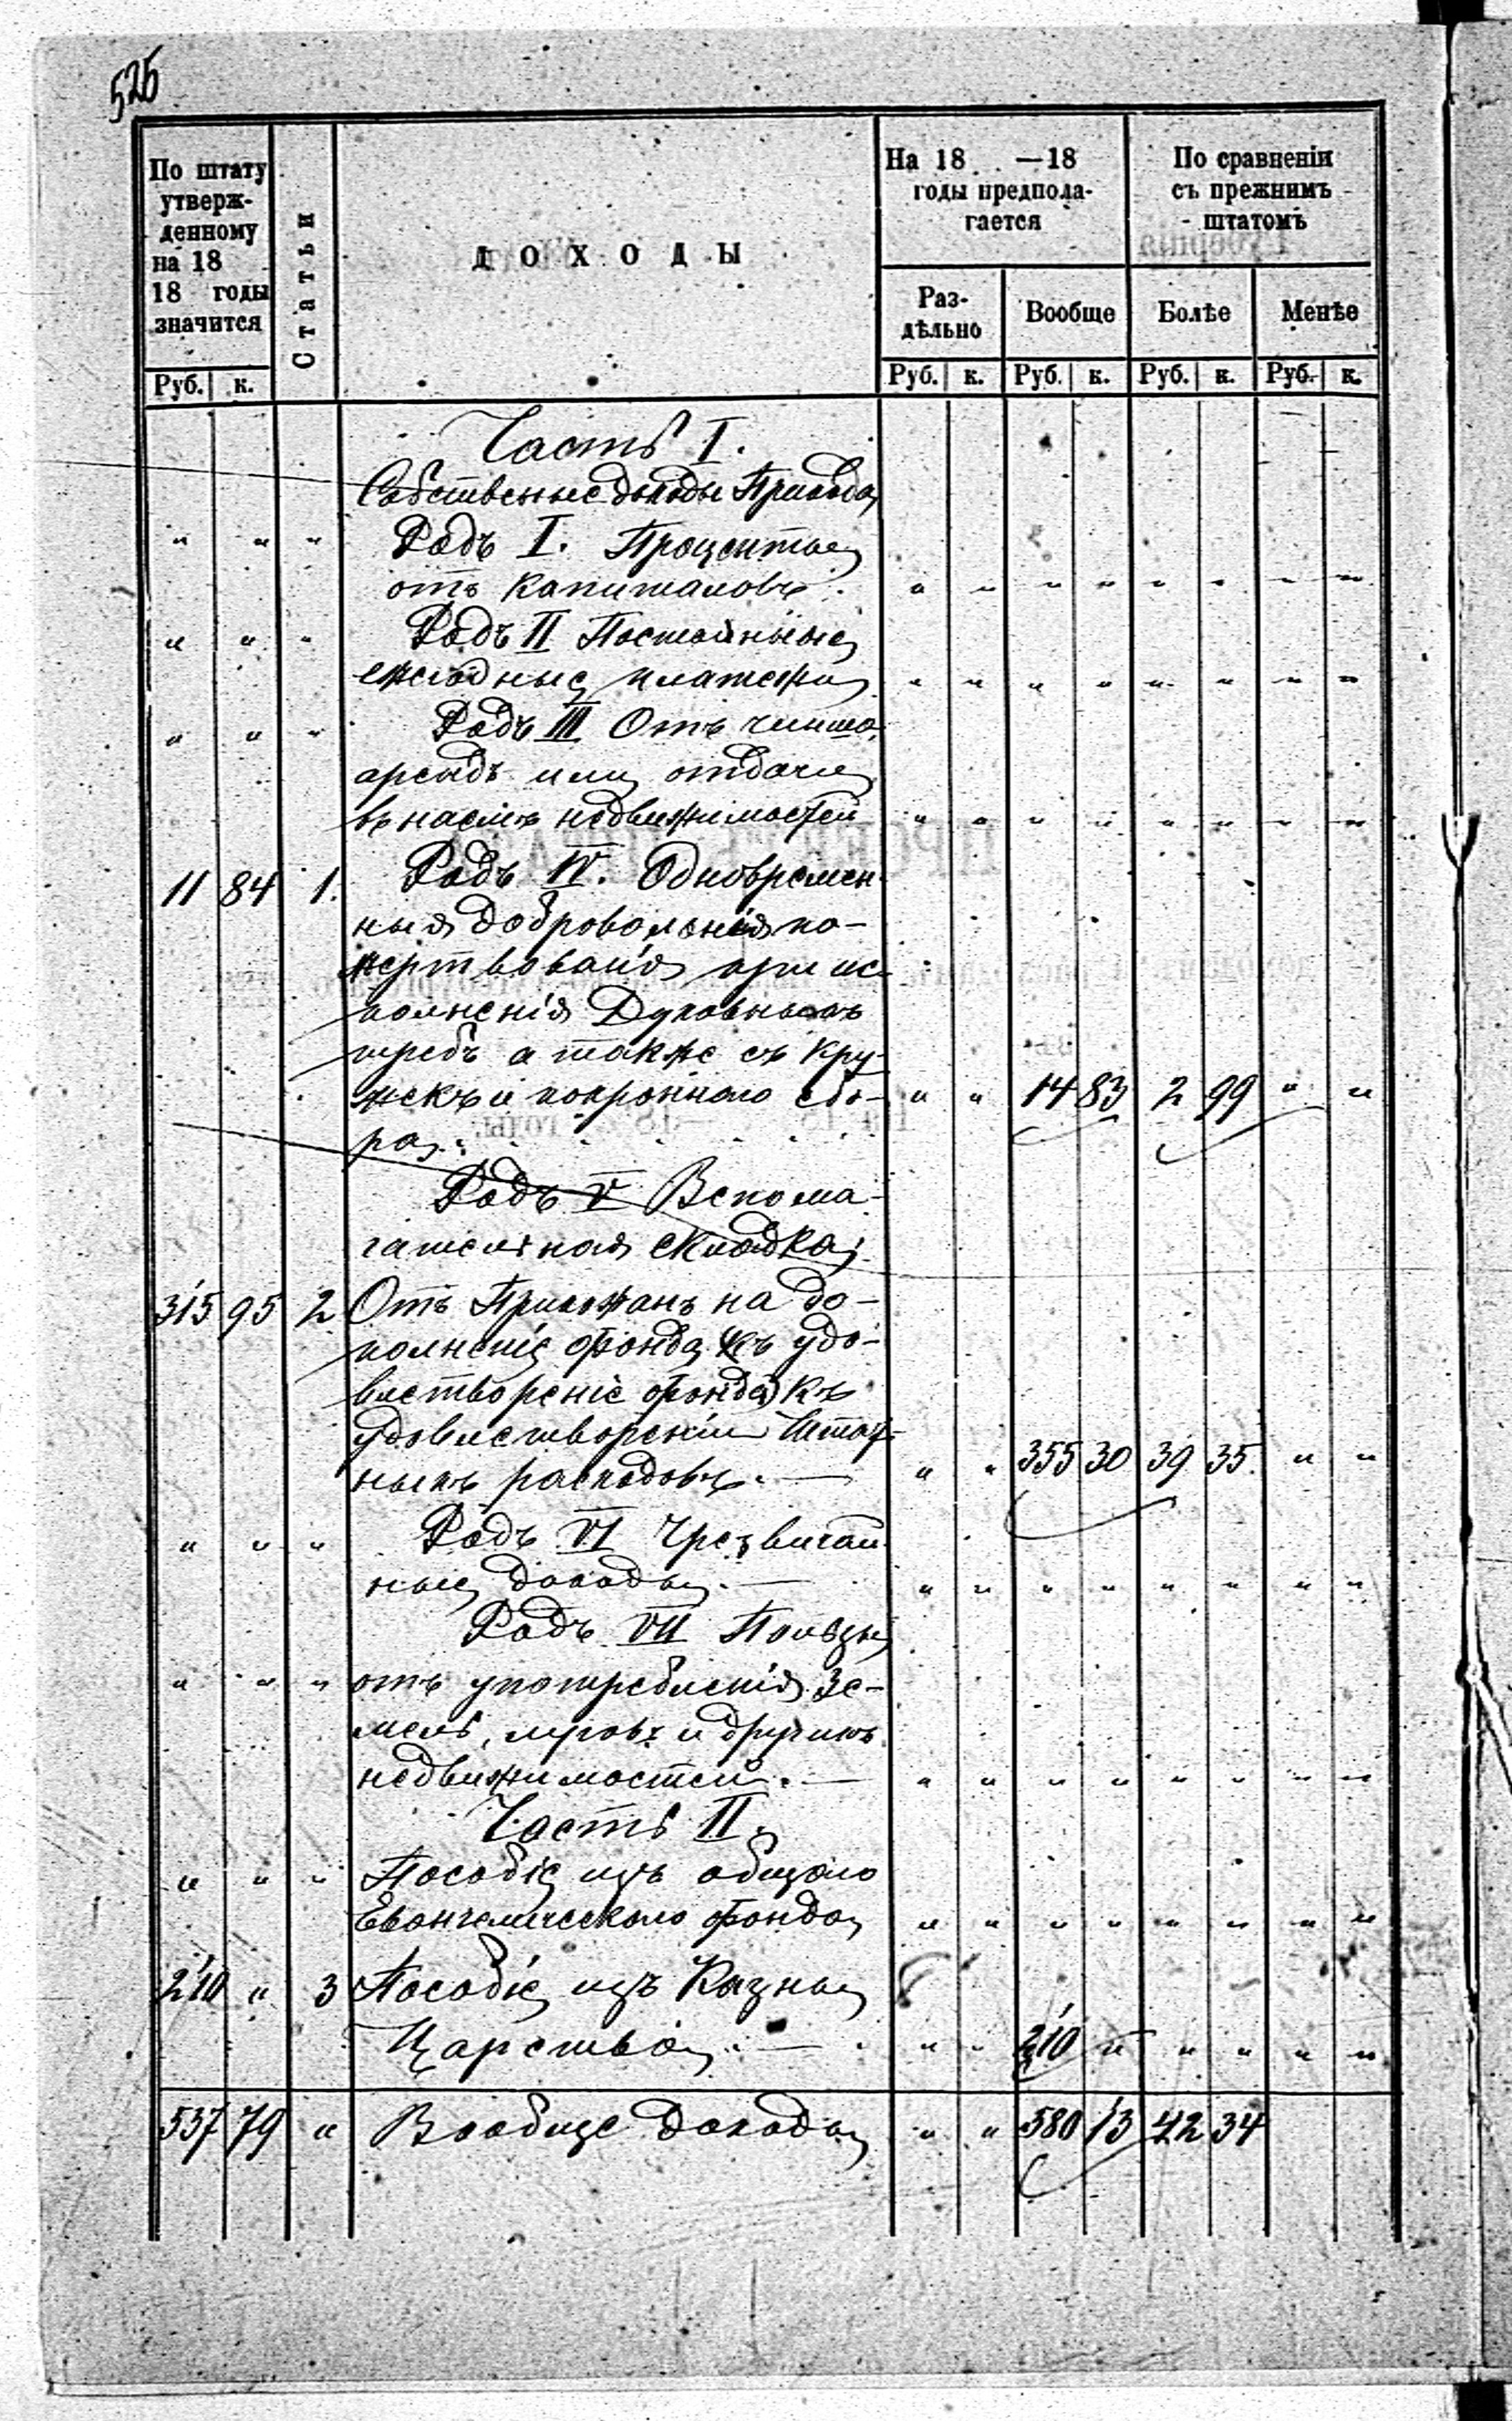 525
По штату
утверж-
денному
на 18
18 годы
значится
Статьи
ДОХОДЫ
На 18 —18
годы предпола-
гается
По сравненіи
съ прежнимъ
штатомъ
Раз-
дѣльно
Вообще
Болѣе
Менѣе
Руб. к. Руб. к. Руб. к. Руб. к. Руб. к.
Часть I.
Собственные доходы Прихода
" " " Родъ I. Проценты
отъ капиталовъ. " " " " " " " "
" " " Родъ II Постоянные
ежегодные платежи " " " " " " " "
" " " Родъ III Отъ чинша,
арендъ или отдачи
въ наемъ недвижимостей " " " " " " " "
11 84 1. Родъ IV. Одновремен-
ныя добровольныя по-
жертвованія при ис-
полненія Духовныхъ
требъ а также съ кру-
жекъ и похроннаго сбо- " " 14 83 2 99 " "
ра.
Родъ V Вспома-
гательная складка.
315 95 2 Отъ Прихожанъ на до-
полненіе фонда (къ удо-
влетвореніе фонда) къ
удовлетворенію Штат-
ныхъ расходовъ. — " " 355 30 39 35 " "
" " " Родъ VI Чрезвичай
ные доходы. — " " " " " " " "
Родъ VII Пользы
" " " отъ употребленія зе-
мель, луговъ и другихъ
недвижимостей. — " " " " " " " "
Часть II.
" " " Пособіе изъ общаго
Евангелическаго фонда " " " " " " " "
210 " 3 Пособіе изъ Казны
Царства. — " " 210 " " " " "
537 79 " Вообще доходы " " 580 13 42 34